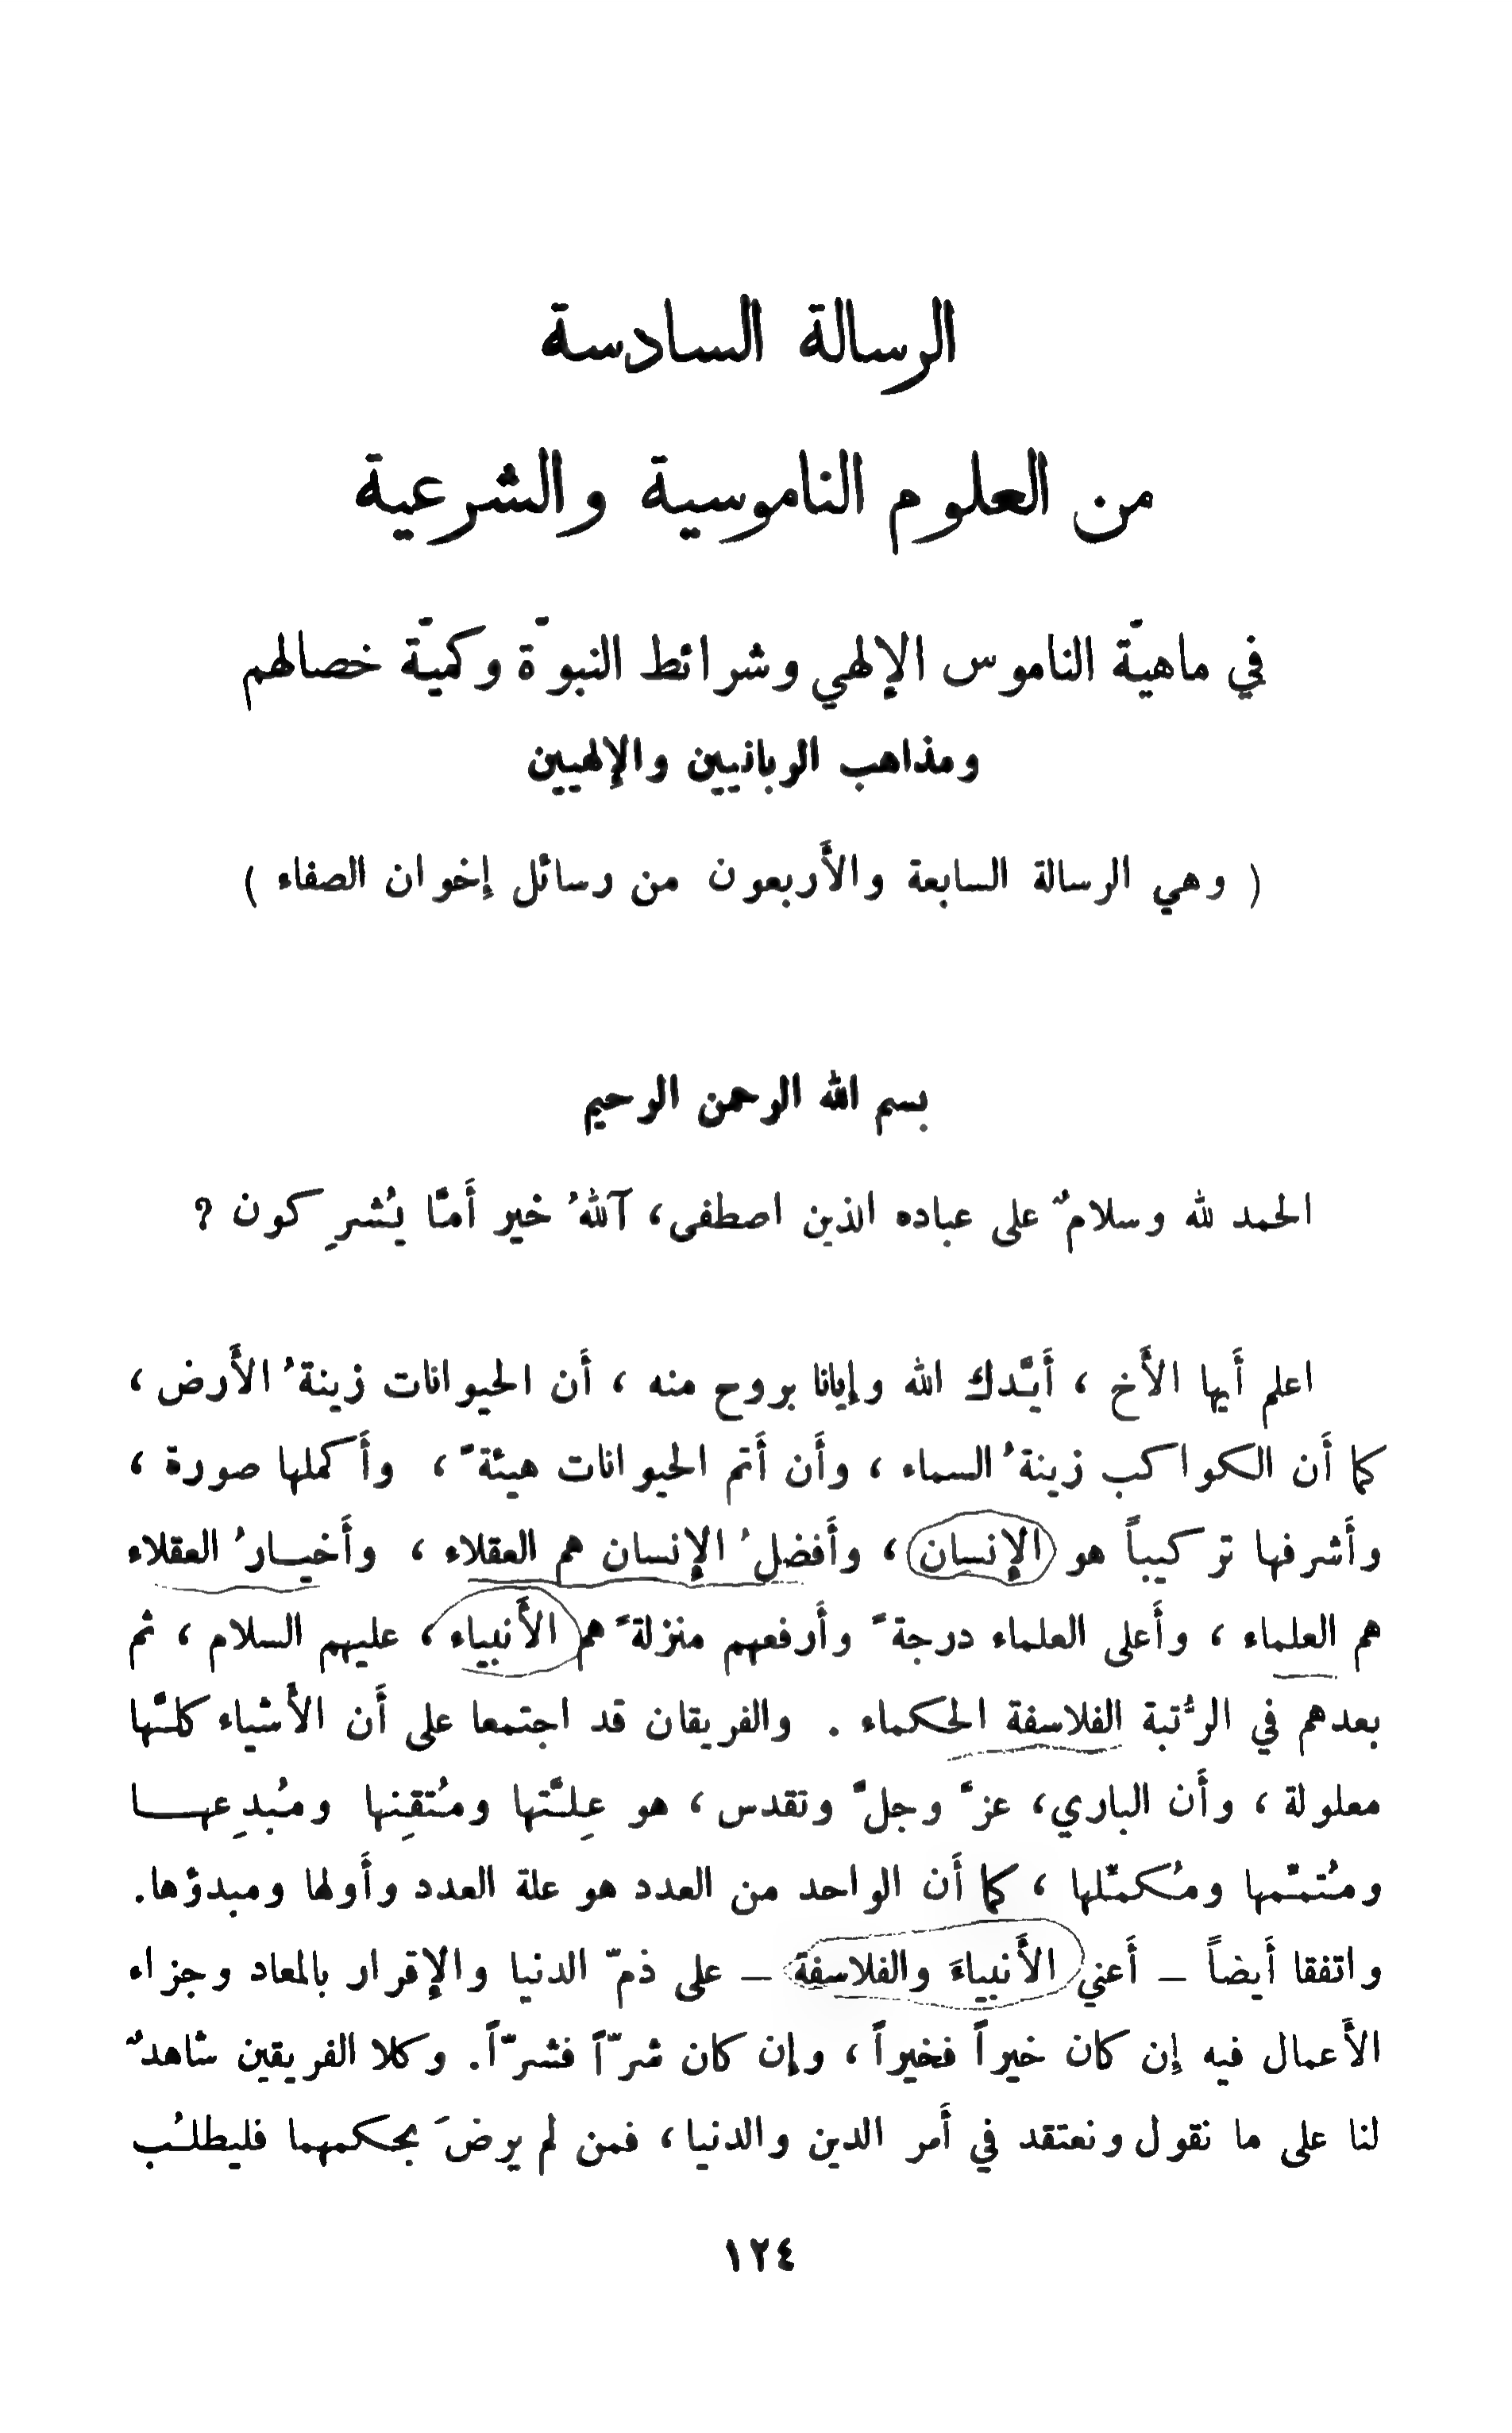 الرسالة السادسة
من العلوم الناموسية والشرعية
في ماهيّة الناموس الإلهي وشرائط النبوّة وكميّة خصالهم
ومذاهب الربانيين والإلهيين
( وهي الرسالة السابعة والأربعون من رسائل إخوان الصفاء )
بسم الله الرحمن الرحيم
الحمد لله وسلامٌ على عباده الذين اصطفى، آللهُ خير أَمَّا يُشرِكون ?
اعلم أَيها الأَخ ، أَيَّدك الله وإيانا بروح منه ، أَن الحيوانات زينةُ الأَرض ،
كما أَن الكواكب زينةُ السماء ، وأَن أَتم الحيوانات هيئةً ، وأَكملها صورة ،
وأَشرفها تركيباً هو الإنسان ، وأَفضلُ الإنسان هم العقلاء ، وأَخيــارُ العقلاء
هم العلماء ، وأَعلى العلماء درجةً وأَرفعهم منزلةً هم الأَنبياء ، عليهم السلام ، ثم
بعدهم في الرُّتبة الفلاسفة الحكماء . والفريقان قد اجتمعا على أَن الأَشياء كلَّها
معلولة ، وأَن الباري، عزَّ وجلَّ وتقدس ، هو عِلَّتها ومُتقِنها ومُبدِعهــا
ومُتمِّمها ومُكمِّلها ، كما أَن الواحد من العدد هو علة العدد وأَولها ومبدؤها.
واتفقا أَيضاً – أَعني الأَنبياءَ والفلاسفة – على ذمّ الدنيا والإقرار بالمعاد وجزاء
الأَعمال فيه إن كان خيراً فخيراً ، وإن كان شرّاً فشرّاً. وكلا الفريقين شاهدٌ
لنا على ما نقول ونعتقد في أَمر الدين والدنيا ، فمن لم يرضَ بحكمهما فليطلُب
١٢٤